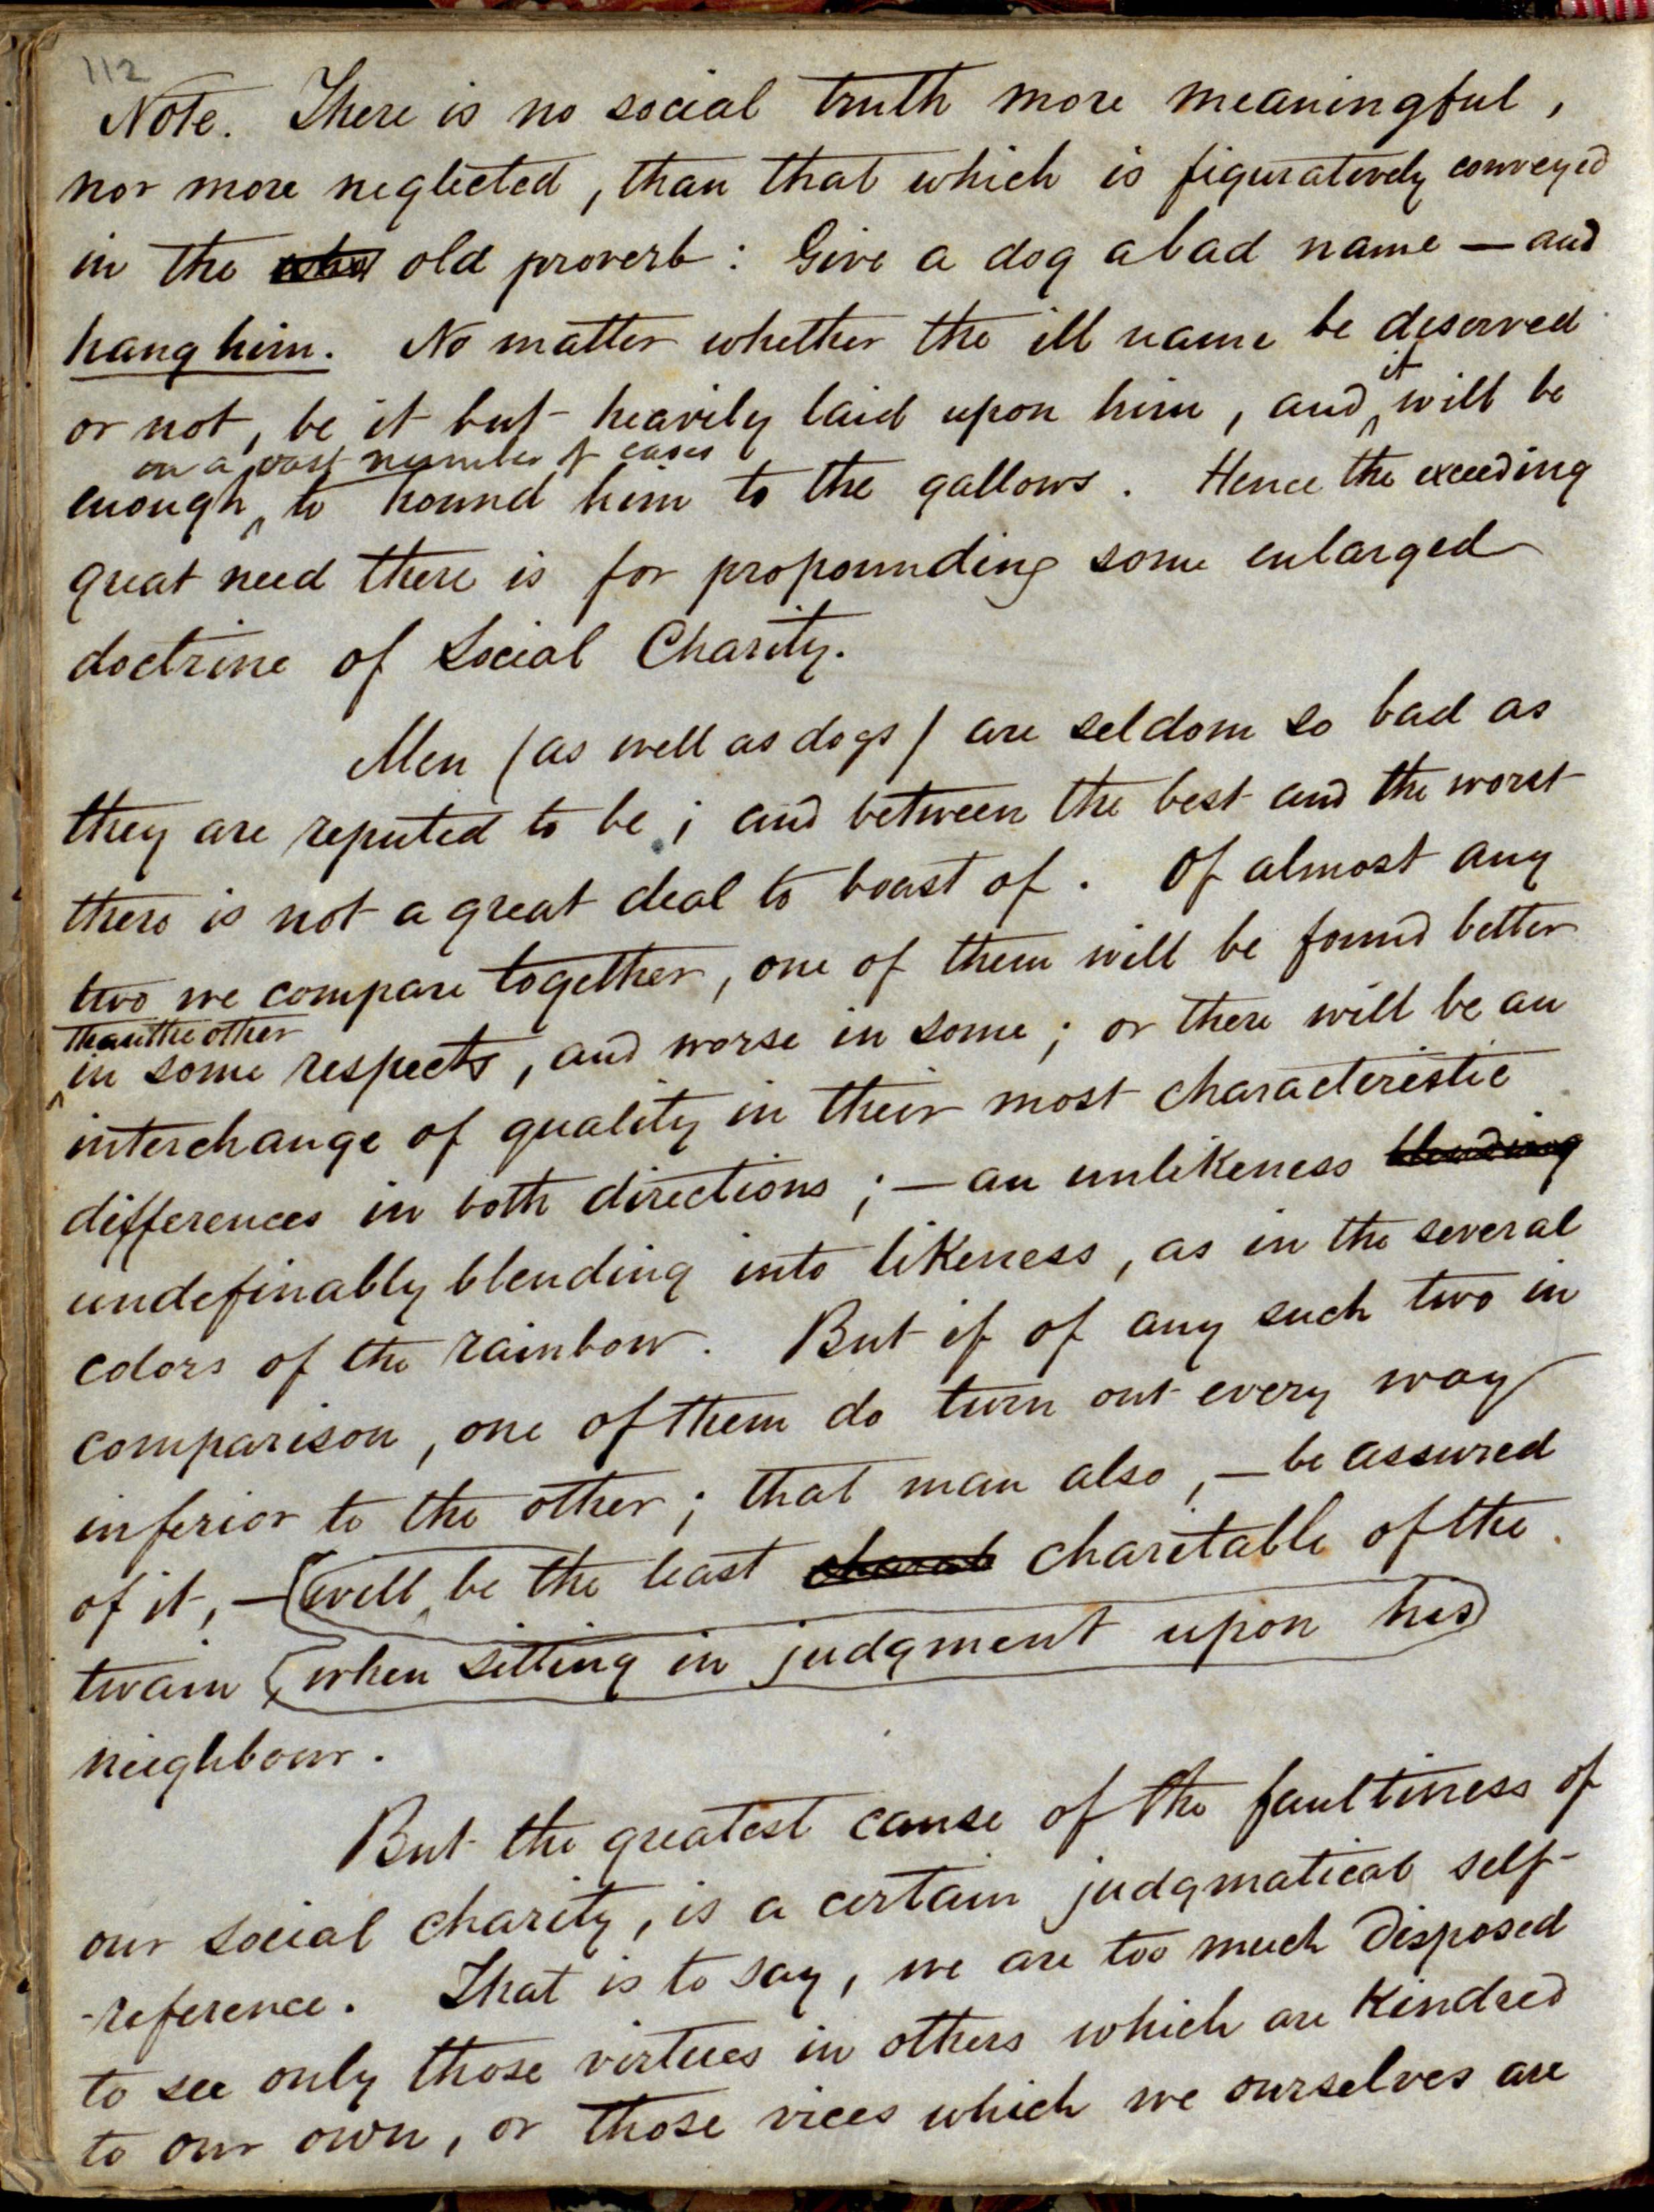 112
Note. There is no social truth more meaningful,
nor more neglected, than that which is figuratively conveyed
in the old proverb: Give a dog a bad name — and
hang him. No matter whether the ill name be deserved
it
or not, be it but heavily laid upon him, and will be
in a vast number of cases
enough to hound him to the gallows. Hence the exceeding
great need there is for propounding some enlarged
doctrine of Social Charity.
Men (as well as dogs) are seldom so bad as
they are reputed to be; and between the best and the worst
there is not a great deal to boast of. Of almost any
two we compare together, one of them will be found better
than the other
in some respects, and worse in some; or there will be an
interchange of quality in their most characteristic
differences in both directions; — an unlikeness blending
undefinably blending into likeness, as in the several
colors of the rainbow. But if of any such two in
comparison, one of them do turn out every way
inferior to the other; that man also, — be assured
of it, — will be the least charitable of the
twain when sitting in judgment upon his
neighbour.
But the greatest cause of the faultiness of
our social charity, is a certain judgmatical self-
-reference. That is to say, we are too much disposed
to see only those virtues in others which are kindred
to our own, or those vices which we ourselves are